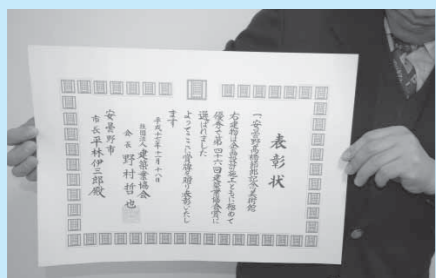 表彰状
一、安曇野髙橋節郎記念美術館
右建物は企画設計施工ともに極めて
優秀で第四十六回建築業協会賞に
選ばれました
よってここに賞牌を贈り表彰いたし
ます
平成十七年十一月十八日
社団法人 建築業協会
会長 野村哲也
安曇野市
市長 平林伊三郎殿